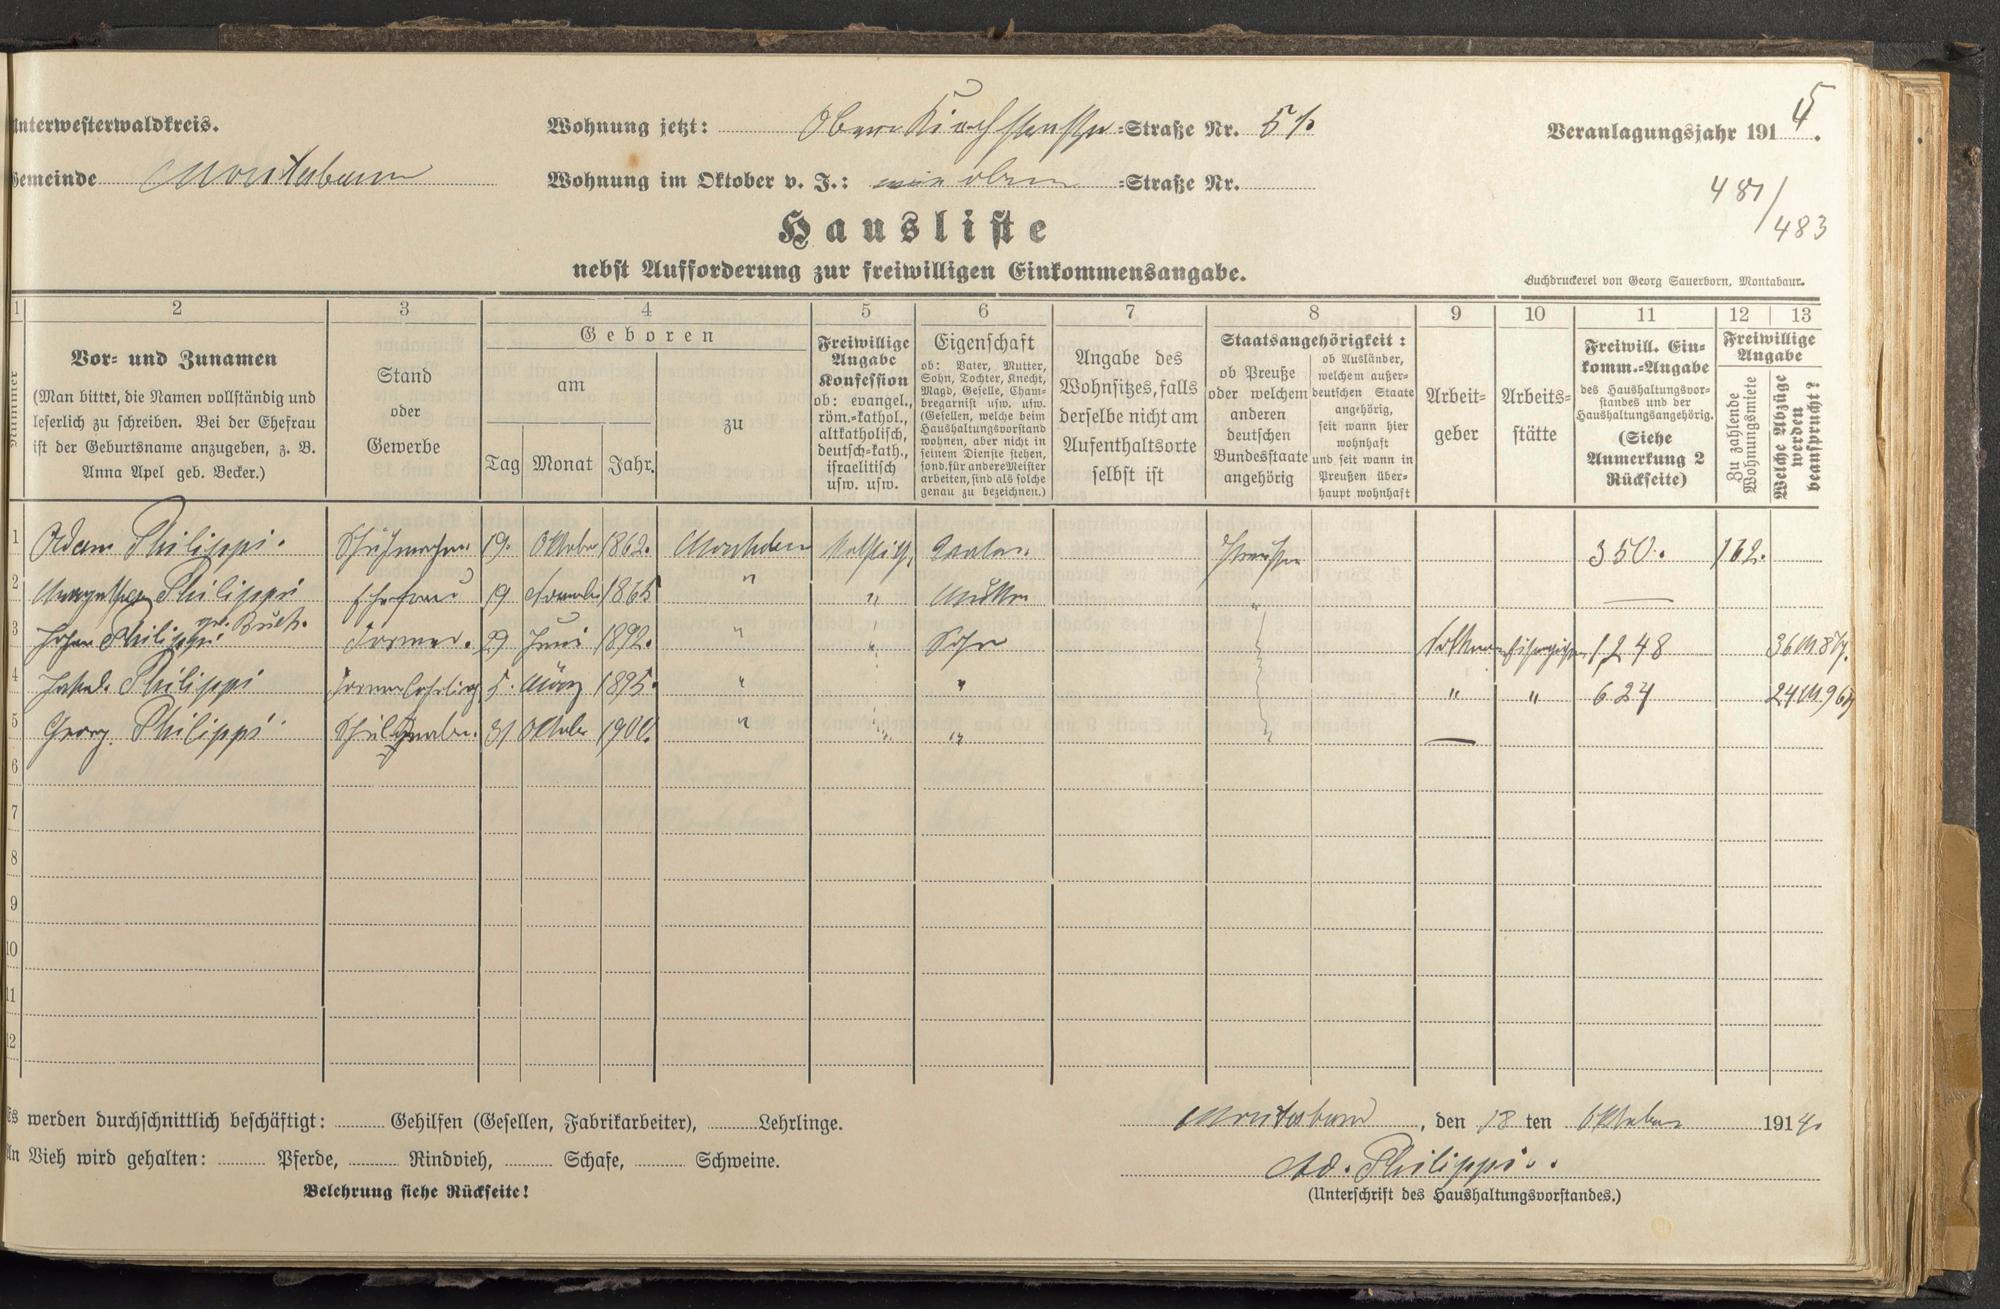 Unterwesterwaldkreis.
Wohnung jetzt: Obere Kirchstrasse =Straße Nr. 51
Veranlagungsjahr 1915.
Gemeinde Montabaur
Wohnung im Oktober v. J.: wie oben =Straße Nr.
481/483
Hausliste
nebst Aufforderung zur freiwilligen Einkommensangabe.
Buchdruckerei von Georg Sauerborn, Montabaur.
1 2 3 4 5 6 7 8 9 10 11 12 13
Nummer
Vor- und Zunamen
(Man bittet, die Namen vollständig und
leserlich zu schreiben. Bei der Ehefrau
ist der Geburtsname anzugeben, z. B.
Anna Apel geb. Becker.)
Stand
oder
Gewerbe
Geboren
am
Tag Monat Jahr.
zu
Freiwillige
Angabe
Konfession
ob: evangel.,
röm.=kathol.,
altkatholisch,
deutsch=kath.,
israelitisch
usw. usw.
Eigenschaft
ob: Vater, Mutter,
Sohn, Tochter, Knecht,
Magd, Geselle, Cham-
bregarnist usw. usw.
(Gesellen, welche beim
Haushaltungsvorstand
wohnen, aber nicht in
seinem Dienste stehen,
sond. für andere Meister
arbeiten, sind als solche
genau zu bezeichnen.)
Angabe des
Wohnsitzes, falls
derselbe nicht am
Aufenthaltsorte
selbst ist
Staatsangehörigkeit:
ob Preuße
oder welchem
anderen
deutschen
Bundesstaate
angehörig
ob Ausländer,
welchem außer-
deutschen Staate
angehörig,
seit wann hier
wohnhaft
und seit wann in
Preußen über-
haupt wohnhaft
Arbeit-
geber
Arbeits-
stätte
Freiwill. Ein-
komm.=Angabe
des Haushaltungsvor-
standes und der
Haushaltungsangehörig.
(Siehe
Anmerkung 2
Rückseite)
Freiwillige
Angabe
Zu zahlende
Wohnungsmiete
Welche Abzüge
werden
beansprucht?
1 Adam Philippi. Schuhmacher. 19. Oktober 1862. Montabaur Kathlisch, Vater. Preussen 350. 162.
2 Margretha Philippi Ehefrau 19 1865 " " Mutter "
geb. Buch.
3 Johan Philippi Former. 29 Juni 1892. " " Sohn 1248 36 M 87
4 Jakob Philippi Formerlehrling 5. März 1895. " " " " 624 24 M 96
5 Georg Philippi Schulknabe. 31 Oktober 1900. " " "
6
7
8
9
10
11
12
Es werden durchschnittlich beschäftigt: Gehilfen (Gesellen, Fabrikarbeiter), Lehrlinge.
An Vieh wird gehalten: Pferde, Rindvieh, Schafe, Schweine.
Belehrung siehe Rückseite!
Montabaur, den 18 ten Oktober 1914.
Ad. Philippi.
(Unterschrift des Haushaltungsvorstandes.)